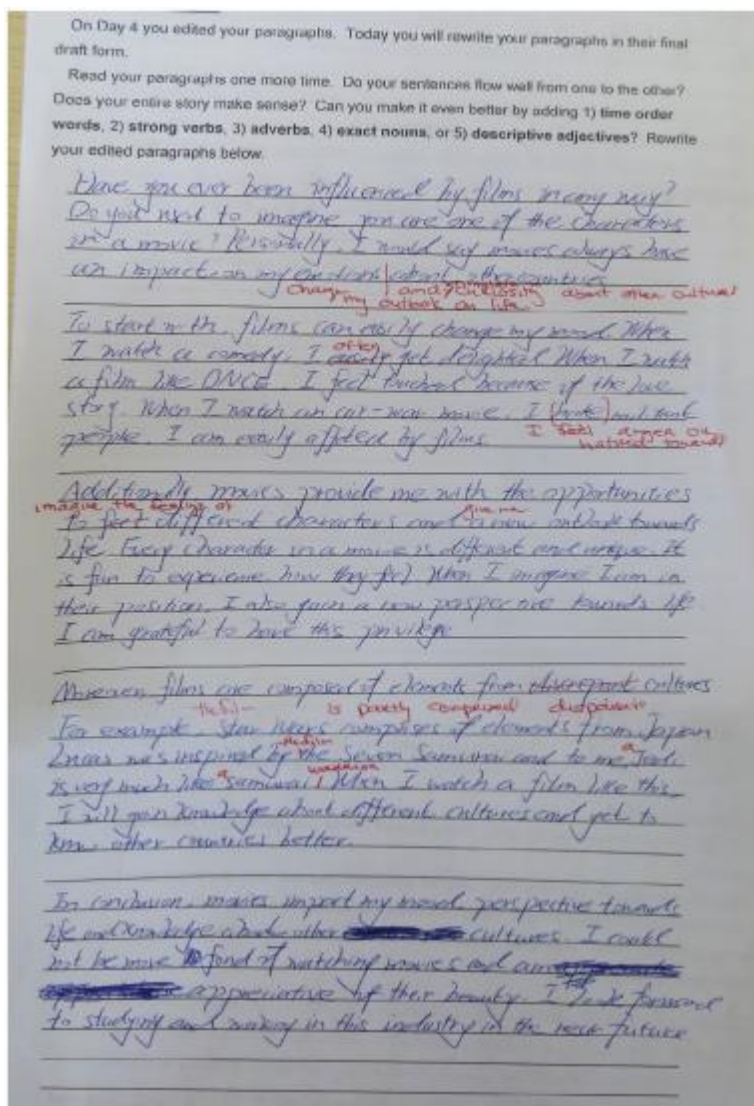 On Day 4 you edited your paragraphs. Today you will rewrite your paragraphs in their final
draft form.
Read your paragraphs one more time. Do your sentences flow well from one to the other?
Does your entire story make sense? Can you make it even better by adding 1) time order
words, 2) strong verbs, 3) adverbs, 4) exact nouns, or 5) descriptive adjectives? Rewrite
your edited paragraphs below.
Have you ever been influenced by films in any way?
Do you used to imagine you are one of the characters
in a movie? Personally, I would say movies always have
an impact on my emotions about other countries
change my outlook on life and curiosity about other cultures
To start with, films can easily change my mood. When
I watch a comedy, I often easily get delighted. When I watch
a film like ONCE, I feel touched because of the love
story. When I watch an war movie, I (hate)
I feel anger or
people. I am easily affected by films.
hatred towards
Additionally, movies provide me with the opportunities
imagine the feeling of
to feel different characters and give me a new outlook towards
life. Every character in a movie is different and unique. It
is fun to experience how they feel. When I imagine I am in
their position, I also gain a new perspective towards life
I am grateful to have this privilege
Moreover films are composed of elements from cultures
the film is partly composed disparate
For example, Star Wars comprises of elements from Japan
Lucas was inspired by the Seven Samurai and to me, a Jedi
is very much like a samurai warrior. When I watch a film like this,
I will gain knowledge about different cultures and get to
know other countries better.
In conclusion, movies impact my mood, perspective towards
life and knowledge about other cultures. I could
not be more fond of watching movies and am
appreciative of their beauty. I look forward
to studying and working in this industry in the near future